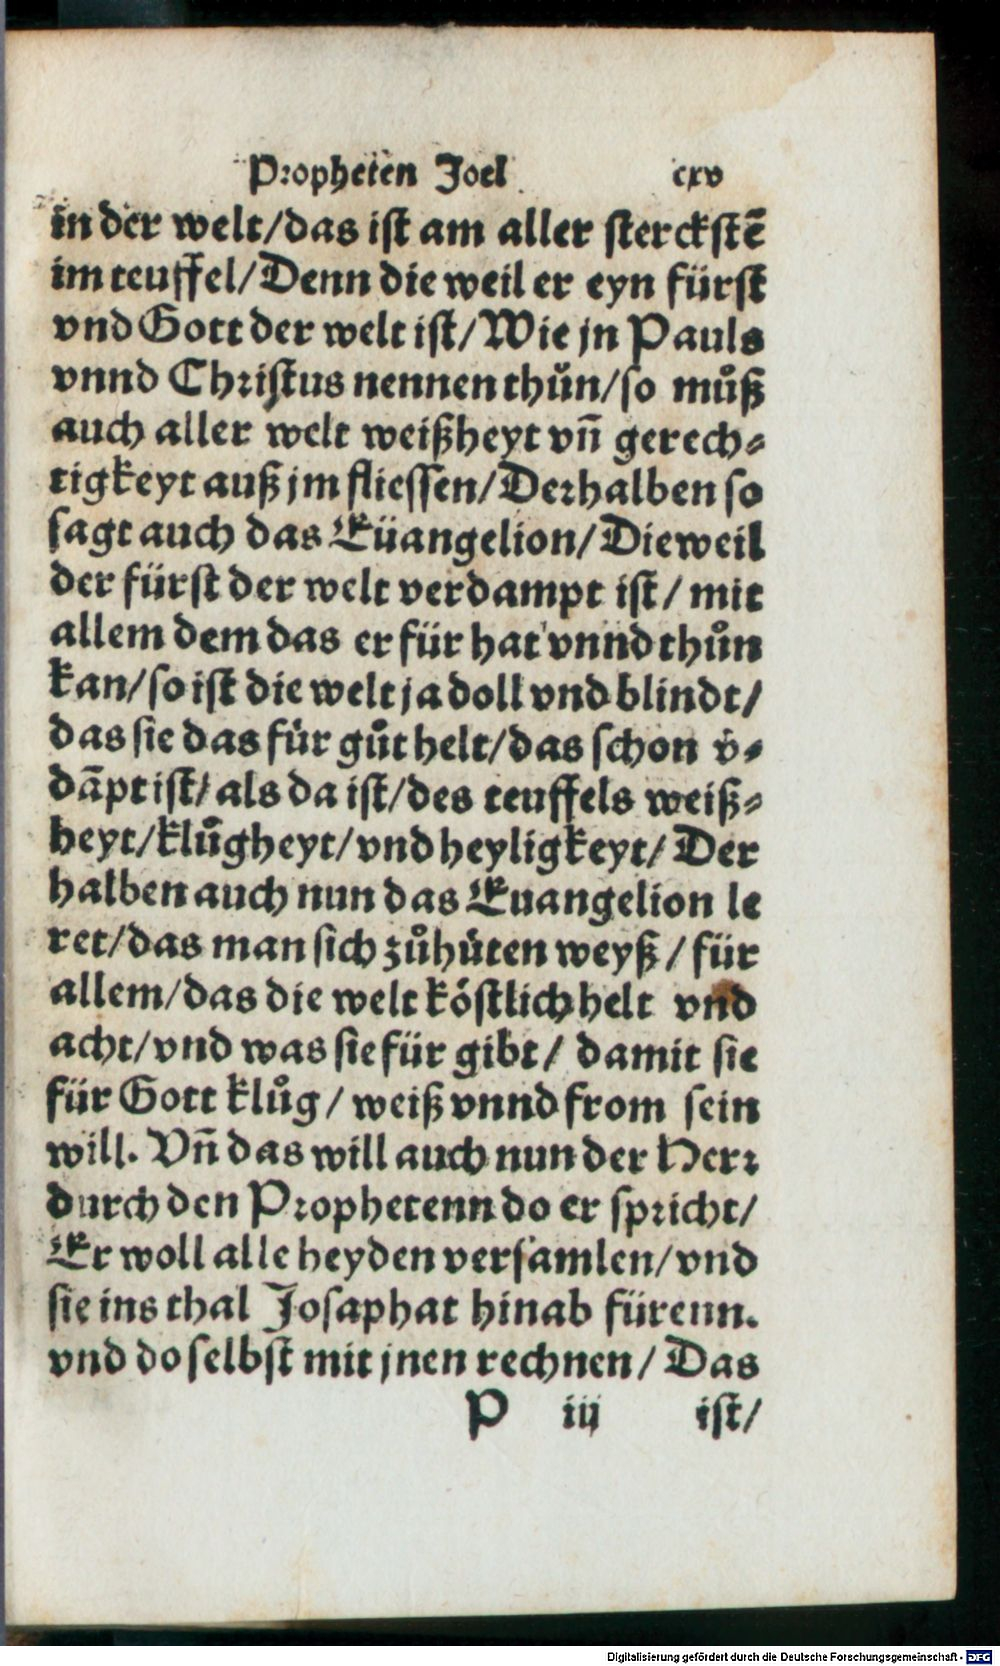 Propheten Joel cxv
in der welt/das ist am aller sterckstē
im teuffel/Denn die weil er eyn fürst
vnd Gott der welt ist/Wie jn Pauls
vnnd Christus nennen thůn/so můß
auch aller welt weißheyt vñ gerech⸗
tigkeyt auß jm fliessen/Derhalben so
sagt auch das Eüangelion/Dieweil
der fürst der welt verdampt ist/ mit
allem dem das er für hat vnnd thůn
kan/so ist die welt ja doll vnd blindt/
das sie das für gůt helt/das schon v̓⸗
dāpt ist/als da ist/des teuffels weiß⸗
heyt/klůgheyt/vnd heyligkeyt/Der
halben auch nun das Euangelion le
ret/das man sich zůhüten weyß/für
allem/das die welt köstlich helt vnd
acht/vnd was sie für gibt/ damit sie
für Gott klůg/ weiß vnnd from sein
will. Vñ das will auch nun der Herr
durch den Prophetenn do er spricht/
Er woll alle heyden versamlen/vnd
sie ins thal Josaphat hinab fürenn.
vnd do selbst mit jnen rechnen/ Das
P iij ist/
Digitalisierung gefördert durch die Deutsche Forschungsgemeinschaft - DFG